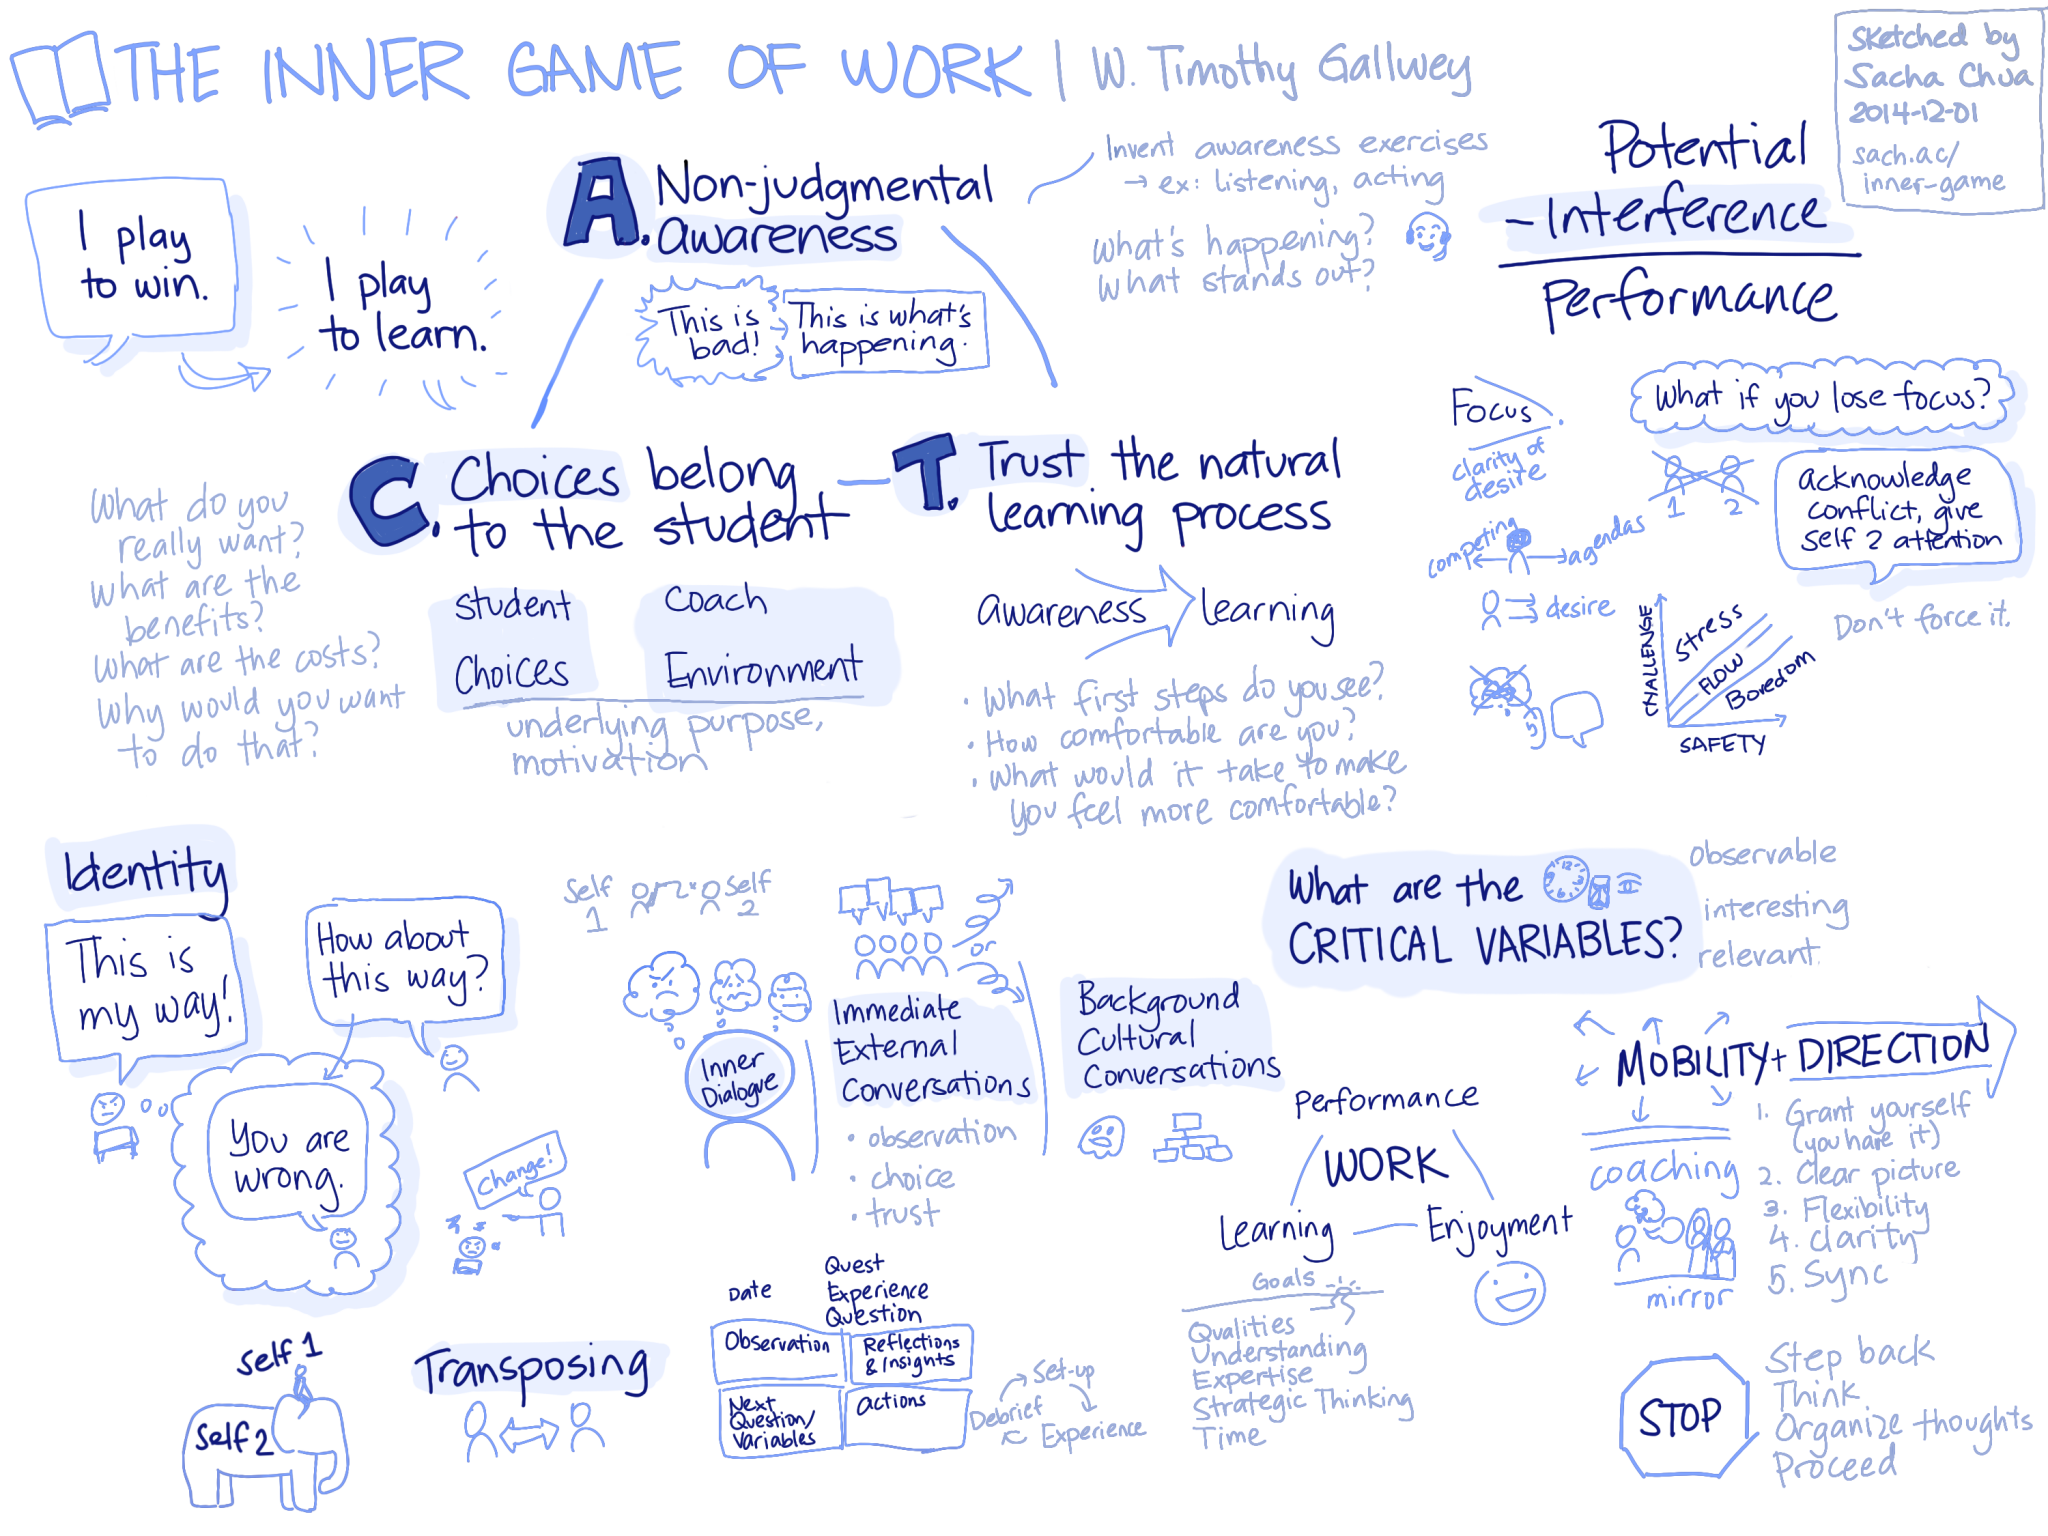 THE INNER GAME OF WORK | W. Timothy Gallwey
Sketched by
Sacha Chua
2014-12-01
sach.ac/
inner-game
I play
to win.
I play
to learn.
A. Non-judgmental
awareness
This is
bad!
This is what's
happening.
Invent awareness exercises
→ ex: listening, acting
What's happening?
What stands out?
Potential
- Interference
Performance
C. Choices belong
to the student
What do you
really want?
What are the
benefits?
What are the costs?
Why would you want
to do that?
student
Coach
Choices
Environment
underlying purpose,
motivation
T. Trust the natural
learning process
awareness
learning
• What first steps do you see?
• How comfortable are you?
• What would it take to make
you feel more comfortable?
Focus
clarity of
desire
competing
agendas
desire
What if you lose focus?
1 2
acknowledge
conflict, give
self 2 attention
Don't force it.
CHALLENGE
Stress
FLOW
Boredom
SAFETY
Identity
This is
my way!
How about
this way?
You are
wrong.
Change!
Self
1
Self
2
Inner
Dialogue
or
Immediate
External
Conversations
• observation
• choice
• trust
Background
Cultural
Conversations
What are the
CRITICAL VARIABLES?
observable
interesting
relevant
Performance
WORK
Learning
Enjoyment
Goals
Qualities
Understanding
Expertise
Strategic Thinking
Time
MOBILITY + DIRECTION
coaching
mirror
1. Grant yourself
(you have it)
2. Clear picture
3. Flexibility
4. clarity
5. Sync
Self 1
Self 2
Transposing
Date
Quest
Experience
Question
Observation
Reflections
& Insights
Next
Question/
Variables
actions
Set-up
Debrief
Experience
STOP
Step back
Think
Organize thoughts
Proceed